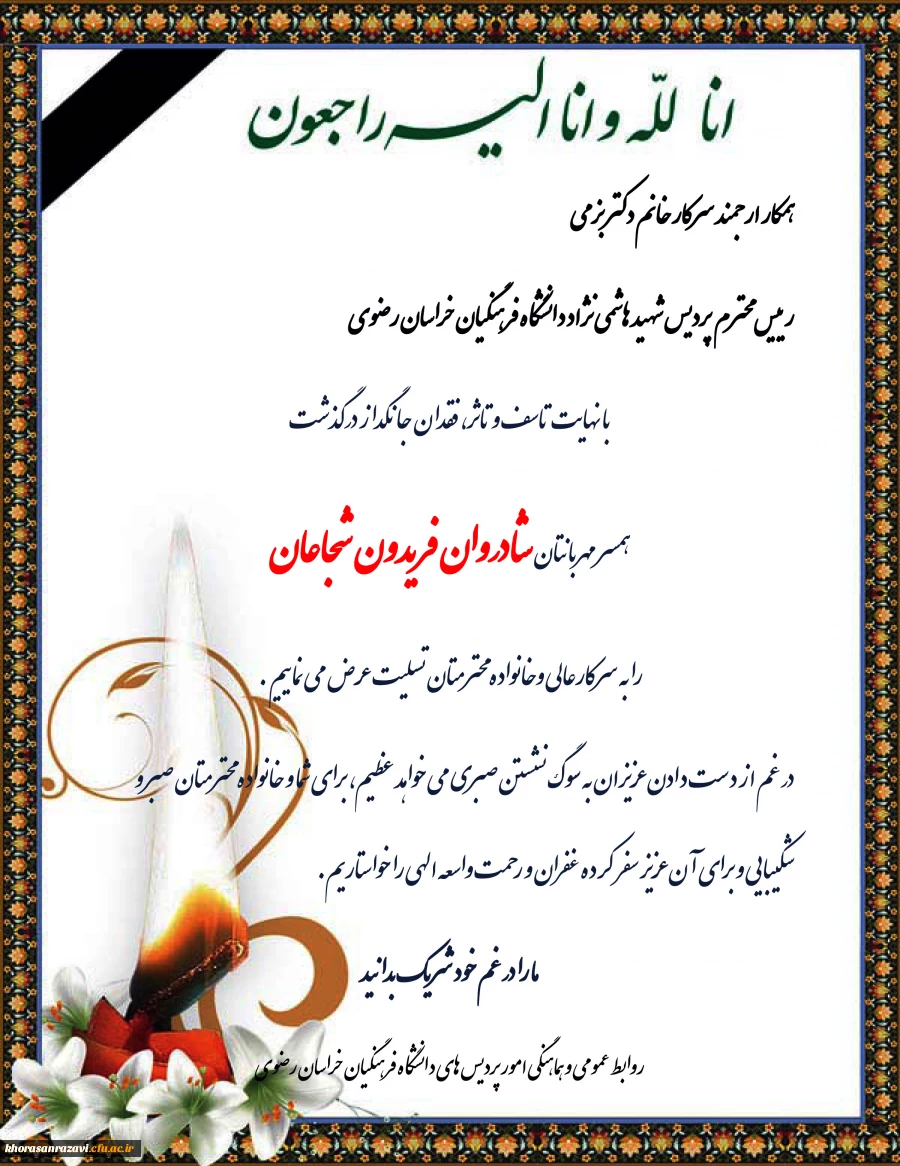 انا لله و انا الیه راجعون
همکار ارجمند سرکار خانم دکتر بزمی
رییس محترم پردیس شهید هاشمی نژاد دانشگاه فرهنگیان خراسان رضوی
با نهایت تاسف و تاثر، فقدان جانگداز درگذشت
همسر مهربانتان شادروان فریدون شجاعان
را به سرکار عالی و خانواده محترمتان تسلیت عرض می نماییم .
در غم از دست دادن عزیزان به سوگ نشستن صبری می خواهد عظیم، برای شما و خانواده محترمتان صبر و
شکیبایی و برای آن عزیز سفر کرده غفران و رحمت واسعه الهی را خواستاریم .
ما را در غم خود شریک بدانید
روابط عمومی و هماهنگی امور پردیس های دانشگاه فرهنگیان خراسان رضوی
khorasanrazavi.cfu.ac.ir